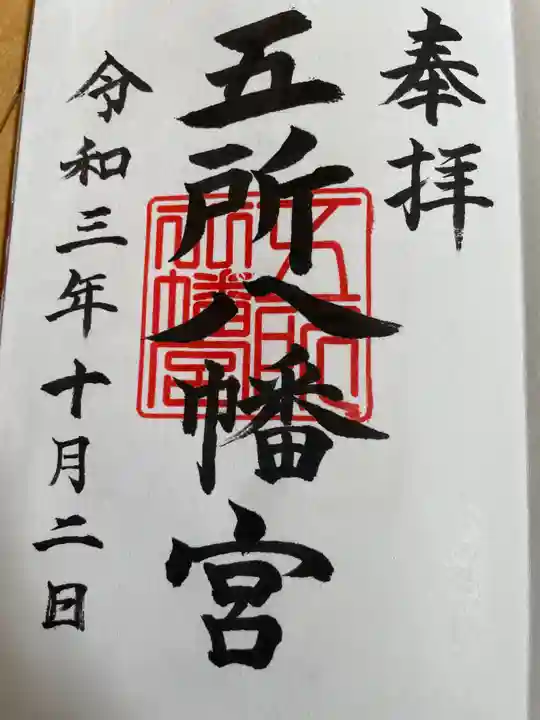 奉拝
五所八幡宮
五所八幡宮
令和三年十月二日